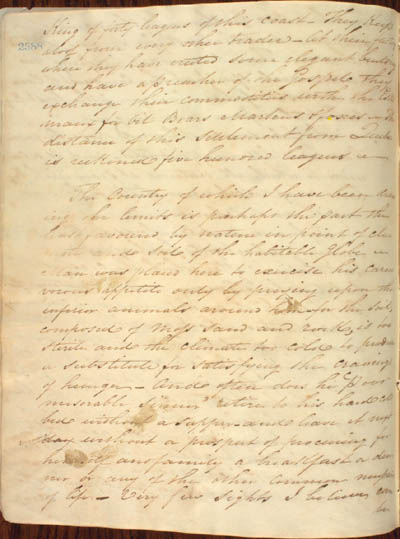 King of forty leagues of this coast - They keep
2558
aloof from every other trader - at their
where they have erected some elegant
and have a preacher of the Gospel. They
exchange their commodities with the
for Oil Bears Martens foxes
distance of this Settlement from
is reckoned five hundred leagues
The Country of which I have been
ing the limits is perhaps the part the
least favoured by nature in point of
and soil of the habitable Globe
Man was placed here to exercise his carni
vorous appetite only by preying upon the
inferior animals around him for the soil,
composed of Moss Sand and rock, is too
steril and the climate too cold to produce
a substitute for satisfying the cravings
of hunger - And often does he
miserable retire to his hard
bed without a supper and leave it
day without a prospect of procuring for
himself and family a breakfast a din
ner or any of the other common
of life - Very few sights I believe can
be